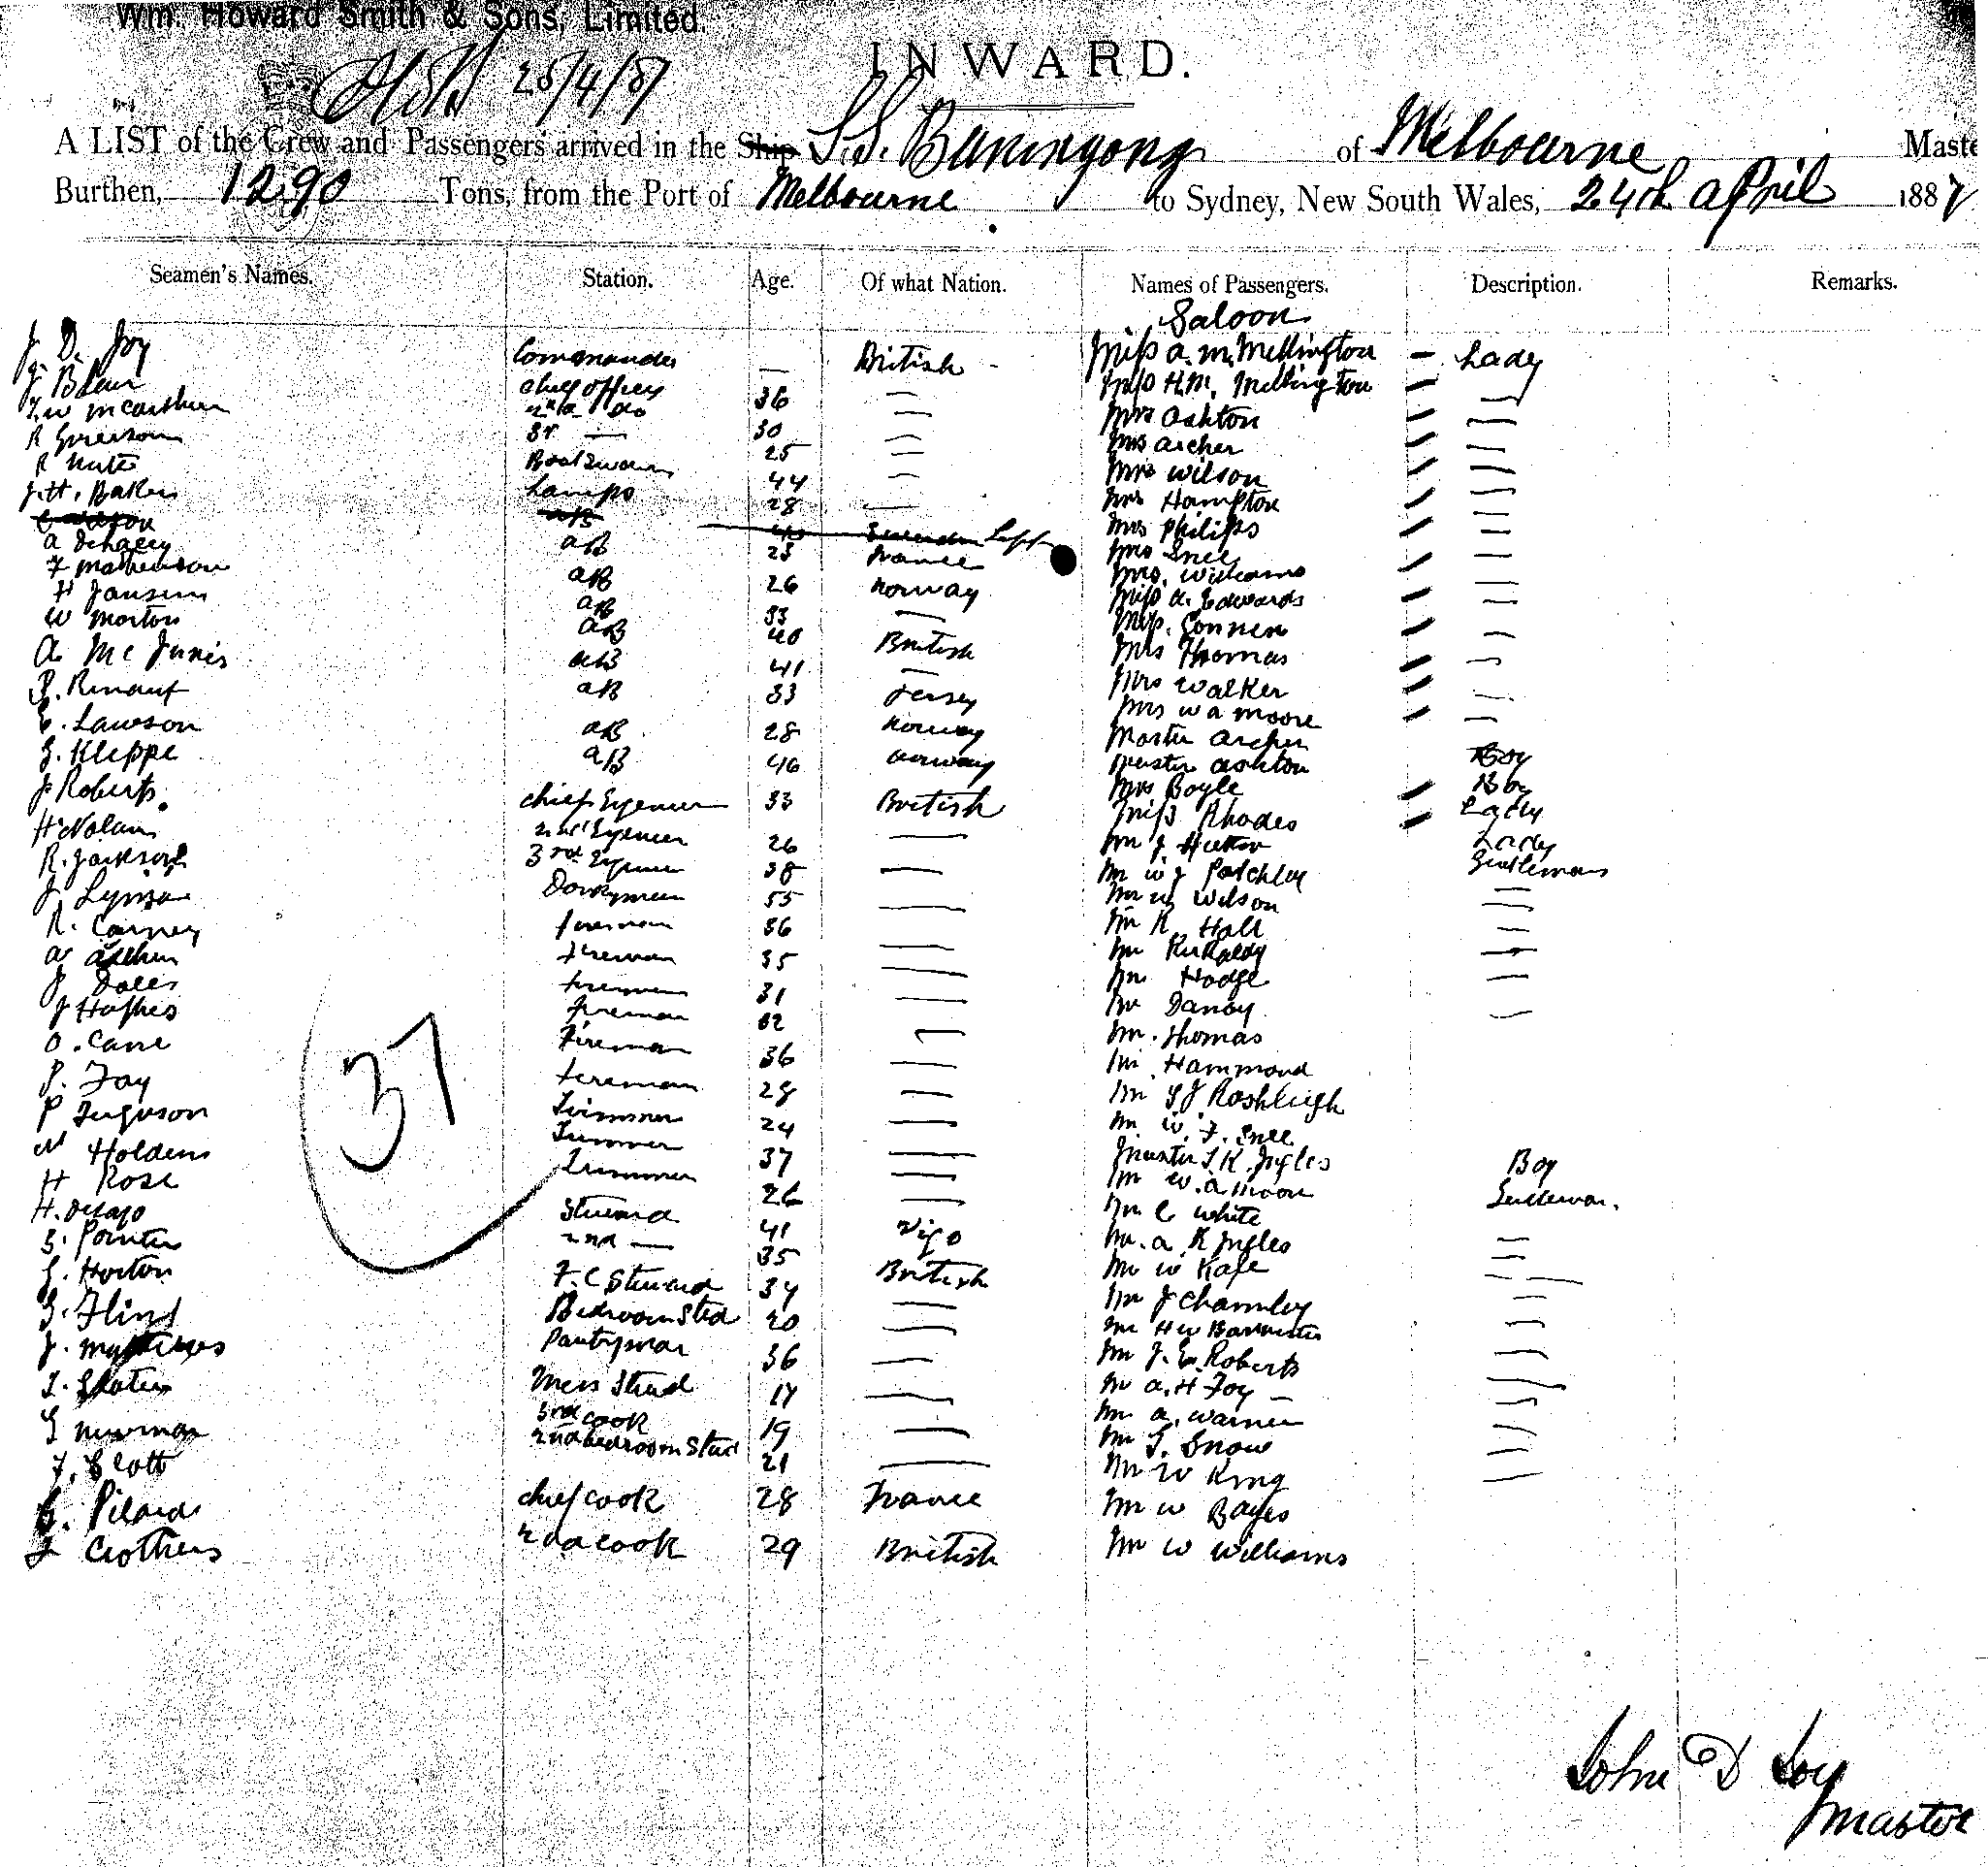 Wm. Howard Smith & Sons, Limited.
25/4/87
INWARD.
A LIST of the Crew and Passengers arrived in the Ship S.S. Buninyong of Melbourne Maste
Burthen, 1290 Tons, from the Port of Melbourne to Sydney, New South Wales, 24th april 1887
Seamen's Names. Station. Age. Of what Nation. Names of Passengers. Description. Remarks.
Saloon
J. D. Joy Commander — British - Miss a. m. Millington — Lady
J Blair chief officer 36 — Miss H.M. Millington —
2nd do 30 — Mrs Ashton —
R Grierson 3r — 25 — Mrs archer —
Boatswain 44 — Mrs Wilson —
J. H. Baker Lamps 28 — Mrs Hampton —
aB Mrs Philips —
aB 23 France Mrs Snell —
aB 26 Norway Mrs. Williams —
H Jansen aB 33 — Miss a. Edwards —
W Morton aB 40 British
aB 41 — Mrs Thomas —
P. Renouf aB 33 Jersey Mrs Walker —
Lawson aB 28 Norway Mrs W a Moore —
G. Kleppe aB 46 Norway Master archer Boy
Master ashton Boy
J Roberts chief Engineer 33 British Mrs Boyle Lady
H Nolan 2nd Engineer 26 — Miss Rhodes Lady
R. Jackson 3rd Engineer 38 — Mr J Hutton Gentleman
Donkeyman 55 — Mr W J Patchley —
R. Carney fireman 36 — Mr W Wilson —
fireman 35 — Mr R. Hall —
J fireman 31 — Mr Kirkaldy —
J Hughes fireman 32 — Mr Hodge —
O. Cane Fireman 36 — Mr Danby —
P. Fay fireman 28 — Mr. Thomas
P Ferguson Trimmer 24 — Mr Hammond
Holdens Trimmer 37 — Mr Rashleigh
H Rose Trimmer 26 — Mr W. F. Snell
37
Steward 41 Vigo Master Ingles Boy
G. Pointer 2nd — 35 British Mr W. a Moore Gentleman.
G. Horton F. C Steward 34 — Mr C White —
G. Flint Bedroom Std 20 — Mr. a K Ingles —
J. Pantryman 36 — Mr W Kafe —
Mess Stewd 17 — Mr J Chamley —
G Newman 3rd cook 19 — Mr H W Bannister —
F. Scott 2nd bedroom Stwd 21 — Mr J. E. Roberts —
Mr a. H Foy —
Mr a. Warner —
Mr G. Snow —
Mr W King —
Pilard chief cook 28 France Mr W Bayes
Crothers 2nd cook 29 British Mr W Williams
John D Joy
Master